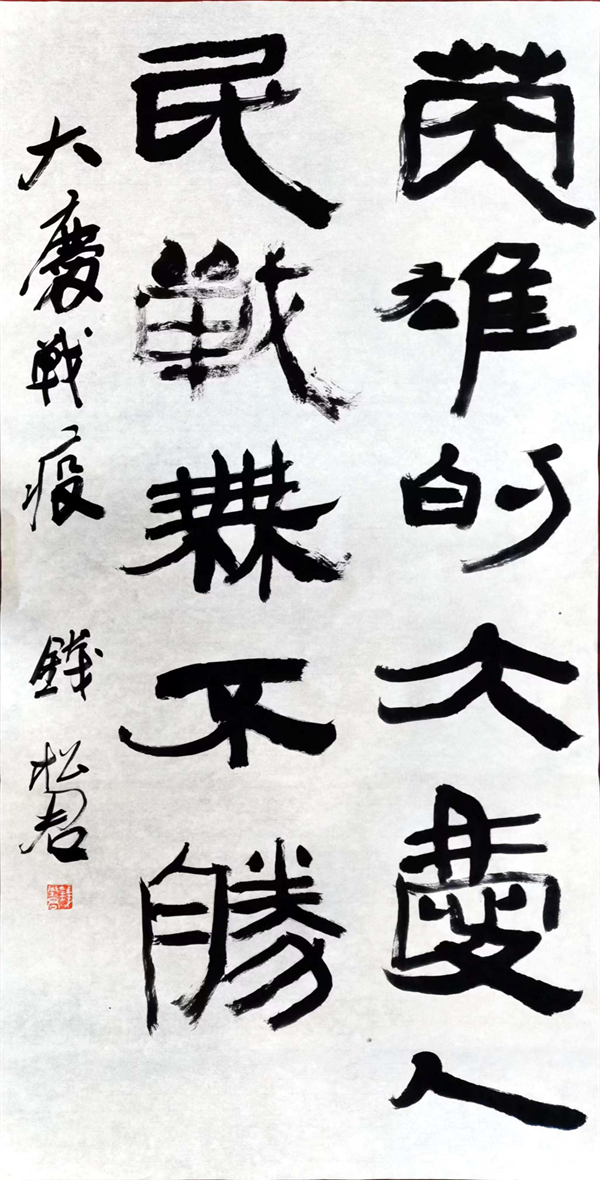 英雄的大慶人
民戰無不勝
大慶戰疫 錢松